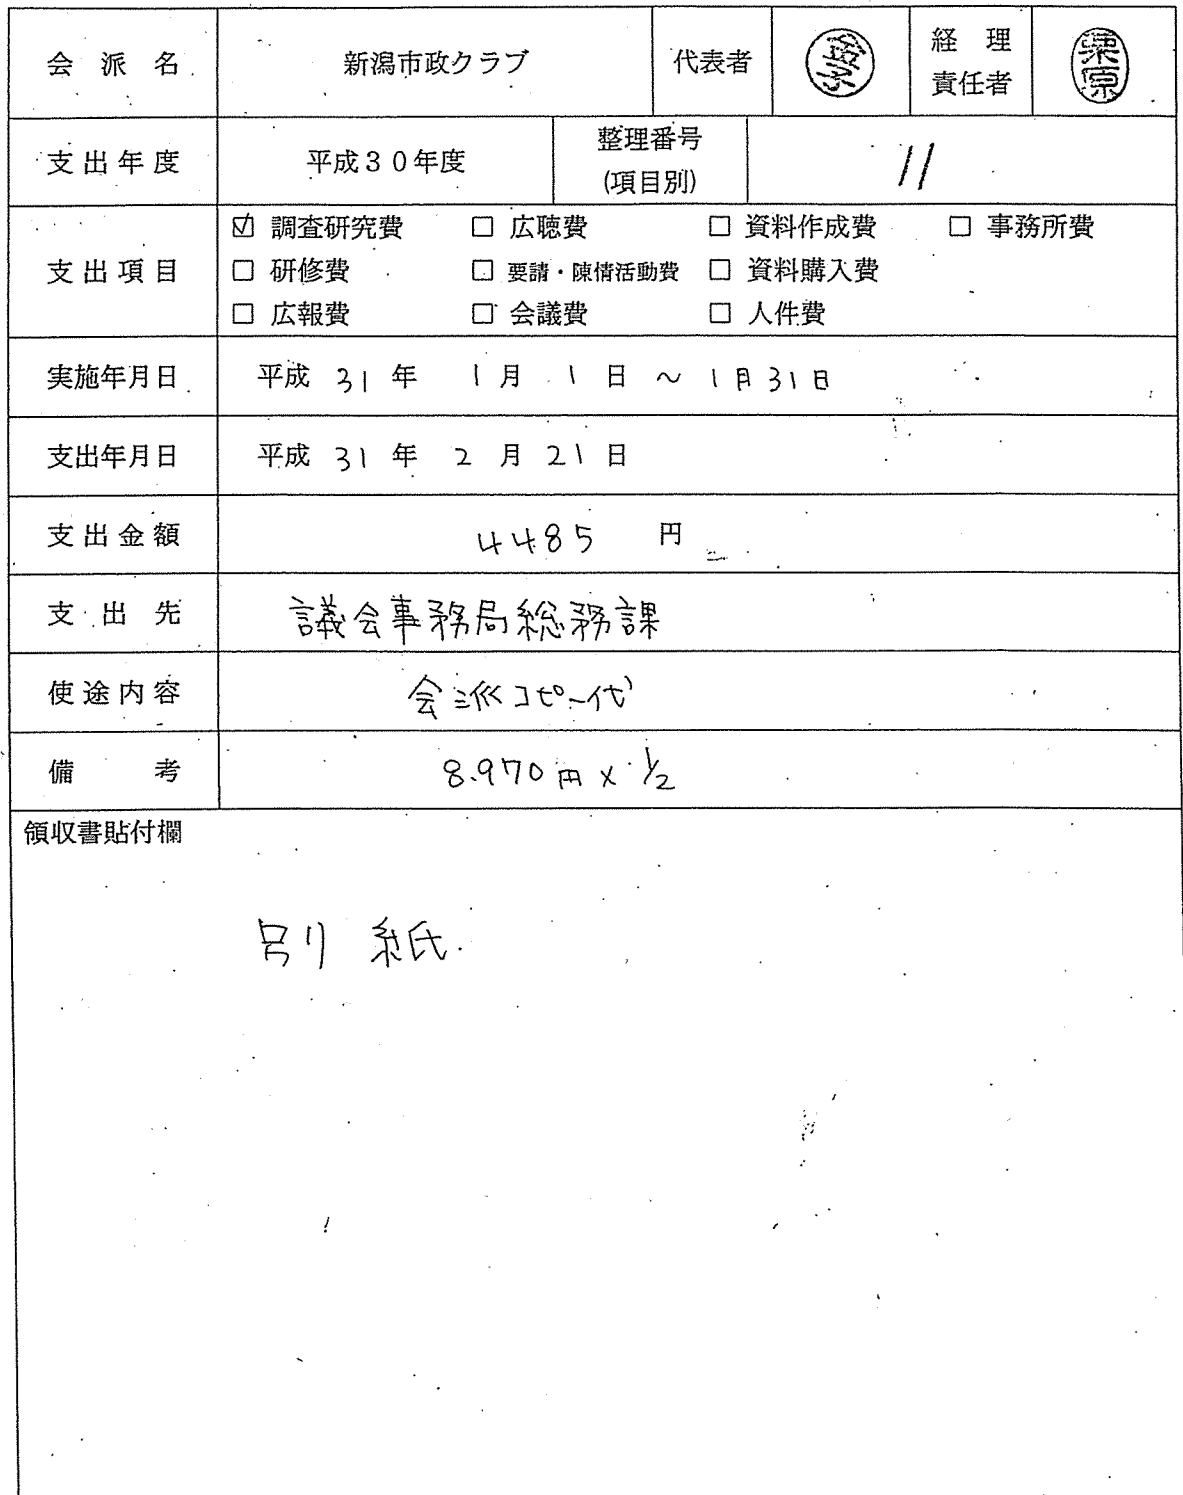 会派名 新潟市政クラブ 代表者 金子 経理責任者 栗原
支出年度 平成30年度 整理番号(項目別) 11
支出項目
☑ 調査研究費 □ 広聴費 □ 資料作成費 □ 事務所費
□ 研修費 □ 要請・陳情活動費 □ 資料購入費
□ 広報費 □ 会議費 □ 人件費
実施年月日 平成 31 年 1 月 1 日 ~ 1月31日
支出年月日 平成 31 年 2 月 21 日
支出金額 4485 円
支出先 議会事務局総務課
使途内容 会派コピー代
備考 8.970円×1/2
領収書貼付欄
別 紙.